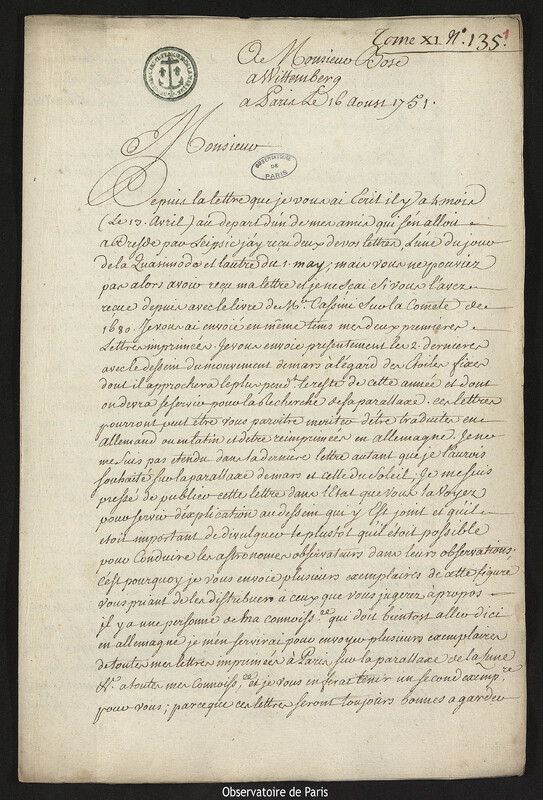 Tome XI. N.º 135. 1
A Monsieur Bose
a Wittemberg
a Paris Le 16 Aoust 1751.
OBSERVATOIRE
DE
PARIS
Monsieur
Depuis la lettre que je vous ai Ecrit il y a 4 mois
(Le 13. Avril) au depart d'un de mes amis qui s'en alloit
a Dresde par Leipsic j'ay reçu deux de vos lettres, L'une du jour
de la Quasimodo et l'autre du 1. may; mais vous ne pouviez
pas alors avoir reçu ma lettre et je ne scai si vous l'avez
recue depuis avec le livre de Mr. Cassini Sur la Comete de
1680. Je vous ai envoié en même tems mes deux premieres
Lettres imprimées. Je vous envoie presentement les 2. dernieres
avec le dessein du mouvement de mars à l'égard des Etoiles fixes
dont il approchera le plus pendt. le reste de cette année et dont
on devra se servir pour la Recherche de sa parallaxe. ces lettres
pourront peut être vous paroitre meriter d'être traduites en
allemand ou en latin et d'etre reimprimées en allemagne. Je ne
me suis pas etendu dans la derniere lettre autant que je l'aurois
souhaité sur la parallaxe de mars et celle du Soleil; Je me suis
pressé de publier cette lettre dans l'Etat que vous la voyez
pour servir d'explication au dessein qui y Est joint et qu'il
etoit important de divulguer le plustot qu'il étoit possible
pour Conduire les astronomes observateurs dans leurs observations.
c'est pourquoy je vous envoie plusieurs exemplaires de cette figure
vous priant de les distribuer à ceux que vous jugerez à propos
il y a une personne de ma connoiss.ce qui doit bientost aller d'ici
en allemagne je m'en servirai pour envoyer plusieurs exemplaires
de toutes mes lettres imprimées à Paris sur la parallaxe de la Lune
&c. a toutes mes Connoiss.ces et je vous en ferai tenir un second exemp.re
pour vous; parceque ces lettres seront toujours bonnes a garder
Observatoire de Paris